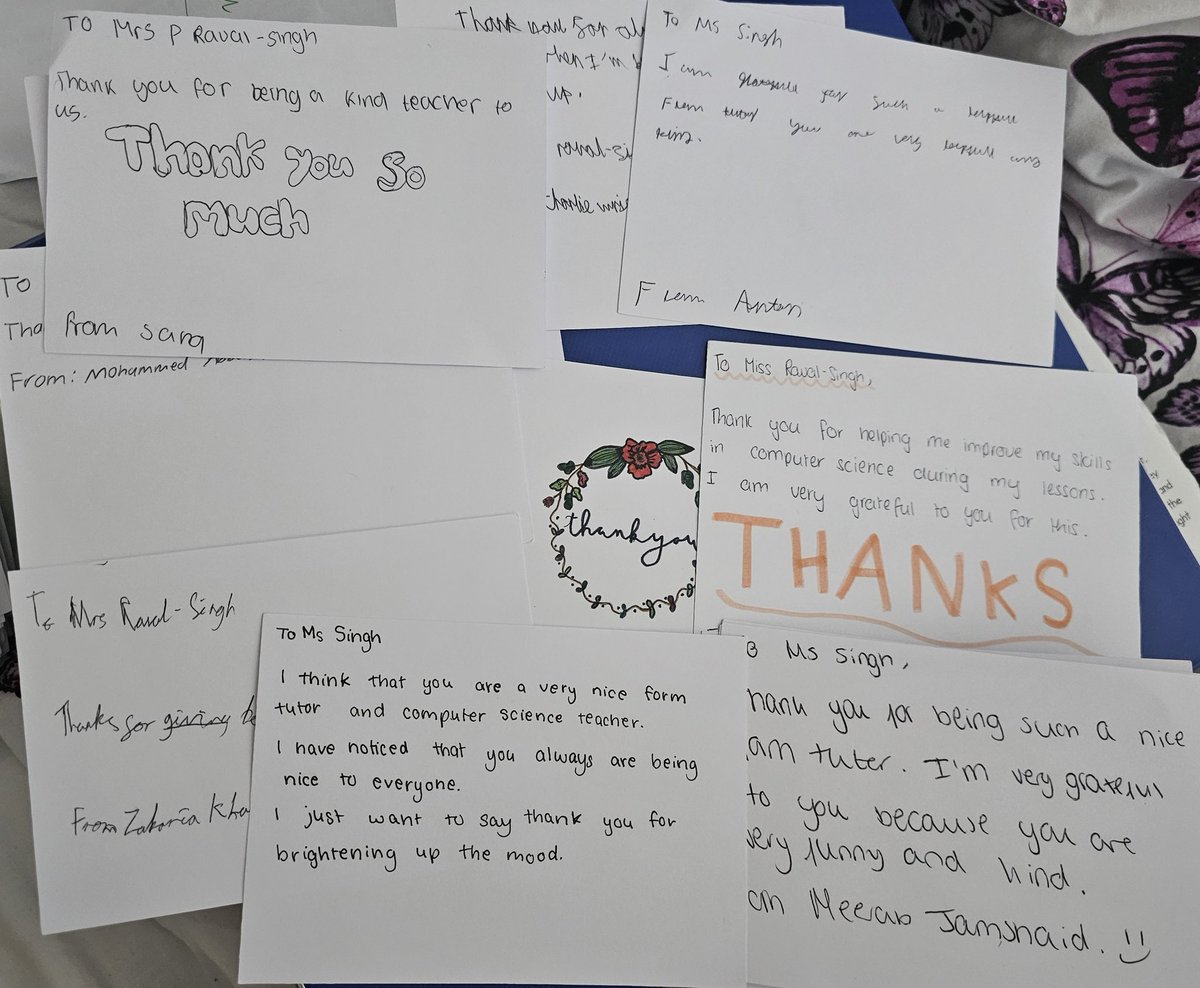 To Mrs P Raval-singh
Thank you for being a kind teacher to
us.
Thank you so
much
From Sara
Thank you for
when I'm
up.
raval-si
charlie
To Ms Singh
I am for such a
From tutor you are very
king.
From Anton
To
Tha
From: Mohammed
To Miss Raval-Singh,
Thank you for helping me improve my skills
in computer science during my lessons.
I am very grateful to you for this.
THANKS
thankyou
To Mrs Raval-Singh
Thanks for giving be
From Zakaria Kha
To Ms Singh
I think that you are a very nice form
tutor and computer science teacher.
I have noticed that you always are being
nice to everyone.
I just want to say thank you for
brightening up the mood.
Ms Singh,
hank you for being such a nice
am tuter. I'm very grateful
to you because you are
very funny and kind.
om Meerab Jamshaid. :)
and
the
ght